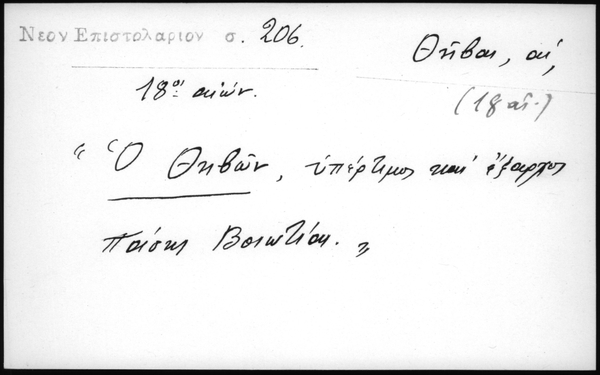 Νεον Επιστολαριον σ. 206.
Θῆβαι, αἱ,
18ος αἰών.
(18 αἰ.)
"Ὁ Θηβῶν, ὑπέρτιμος καὶ ἔξαρχος
πάσης Βοιωτίας."